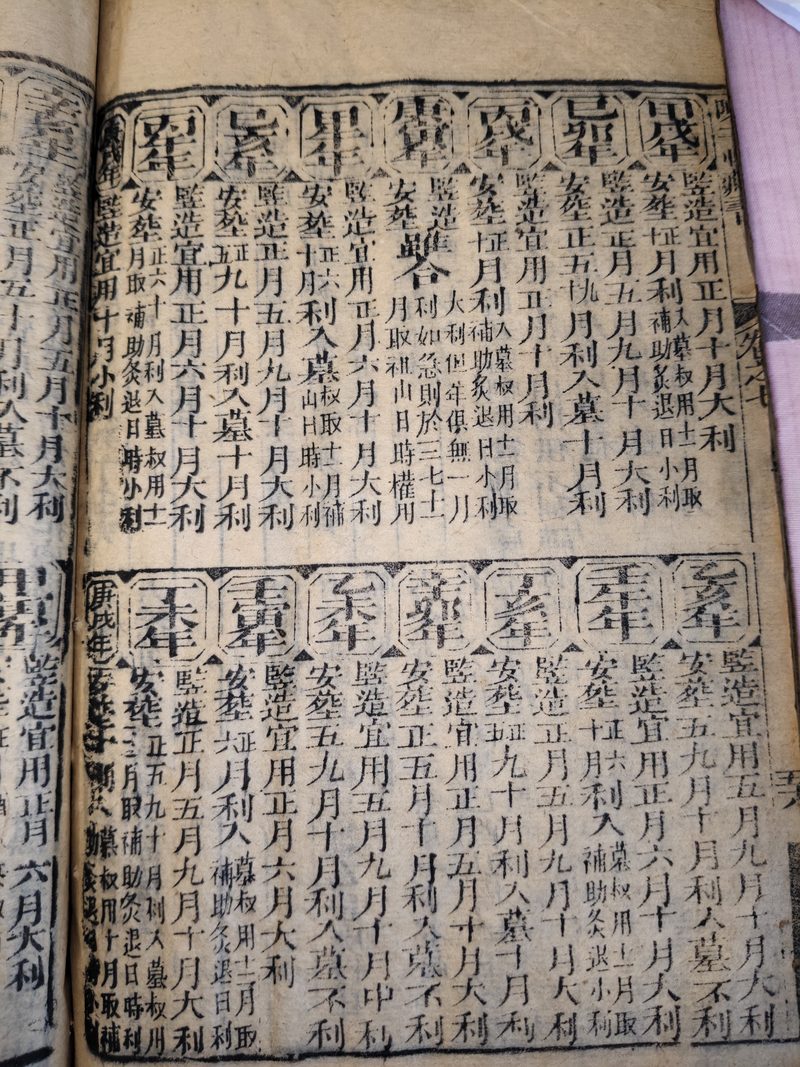 卷之七
甲戌年
竪造宜用正月十月大利
安葬正十月利入墓权用十二月取
補助炙退日小利
己卯年
竪造正月五月九月十月大利
安葬正五九月利入墓十月利
丙戌年
竪造宜用正月十月利
安葬正十月利入墓权用十二月取
補助炙退日小利
庚寅年
竪造安葬雖合
大利但年俱無一月
利如急則於三七十二
月取祖山日時權用
甲午年
竪造宜用正月六月十月大利
安葬正六十月利入墓权取十二月補
山日時小利
己亥年
竪造正月五月九月十月大利
安葬正五九十月利入墓十月利
丙午年
竪造宜用正月六月十月大利
安葬正六十月利入墓权用十二
月取補助炙退日時小利
庚戌年
竪造宜用十月小利
乙亥年
竪造宜用五月九月十月大利
安葬五九月十月利入墓不利
壬午年
竪造宜用正月六月十月大利
安葬正六十月利入墓权用十二月取
補助炙退小利
丁亥年
竪造正月五月九月十月大利
安葬正五九十月利入墓十月利
辛卯年
竪造宜用正月五月十月大利
安葬正五月十月利入墓不利
乙未年
竪造宜用五月九月十月中利
安葬五九月十月利入墓不利
壬寅年
竪造宜用正月六月大利
安葬正六月利入墓权用十二月取
補助炙退日利
丁未年
竪造正月五月九月十月大利
安葬正五九十月利入墓权用
十二月取補助炙退日時利
庚戌年
安葬十月入墓权用十月取補
辛亥年
竪造宜用正月五月十月大利
安葬正月五十月利入墓不利
竪造宜用正月六月大利